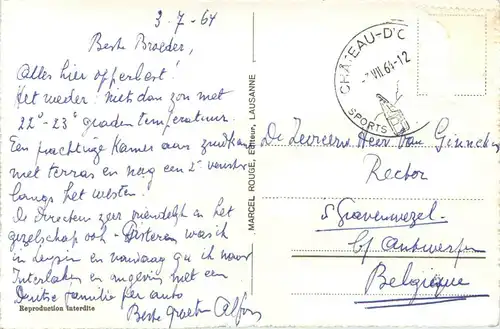 3-7-64
Beste Broeder,
Alles hier opperbest!
Het weder: niets dan zon met
22°-23° graden temperatuur.
Een prachtige Kamer aan zuidkant
met terras en nog een 2e venster
langs het westen.
De Directeur zeer vriendelijk en het
gezelschap ook - Gisteren was ik
in Leysin en vandaag ga ik naar
Interlaken en omgeving met een
Duitse familie per auto
Beste groeten Alfons
Reproduction interdite
MARCEL ROUGE, Editeur, LAUSANNE
CHÂTEAU-D'O
VII.64-12
SPORTS
De Zeereerw. Heer Van Ginneken
Rector
s Gravenwezel
bij Antwerpen
Belgique